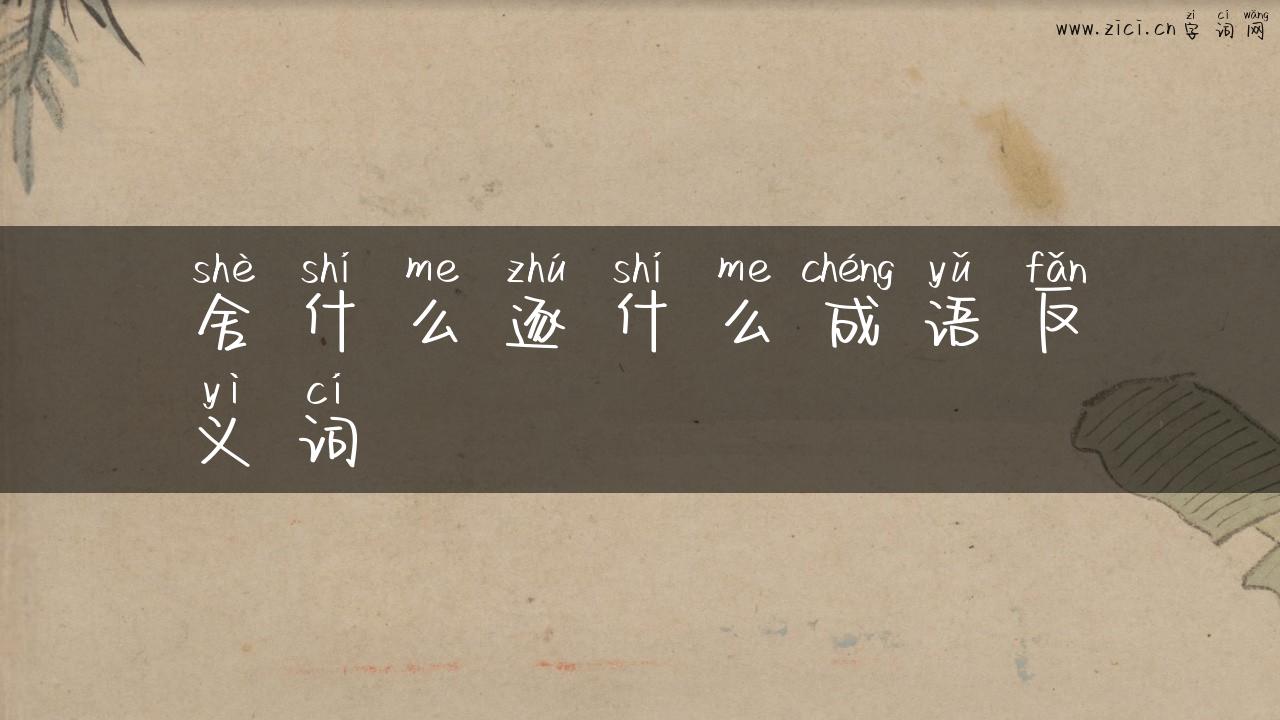 zì cí wǎng
www.zici.cn 字词网
shè shí me zhú shí me chéng yǔ fǎn
舍什么逐什么成语反
yì cí
义词